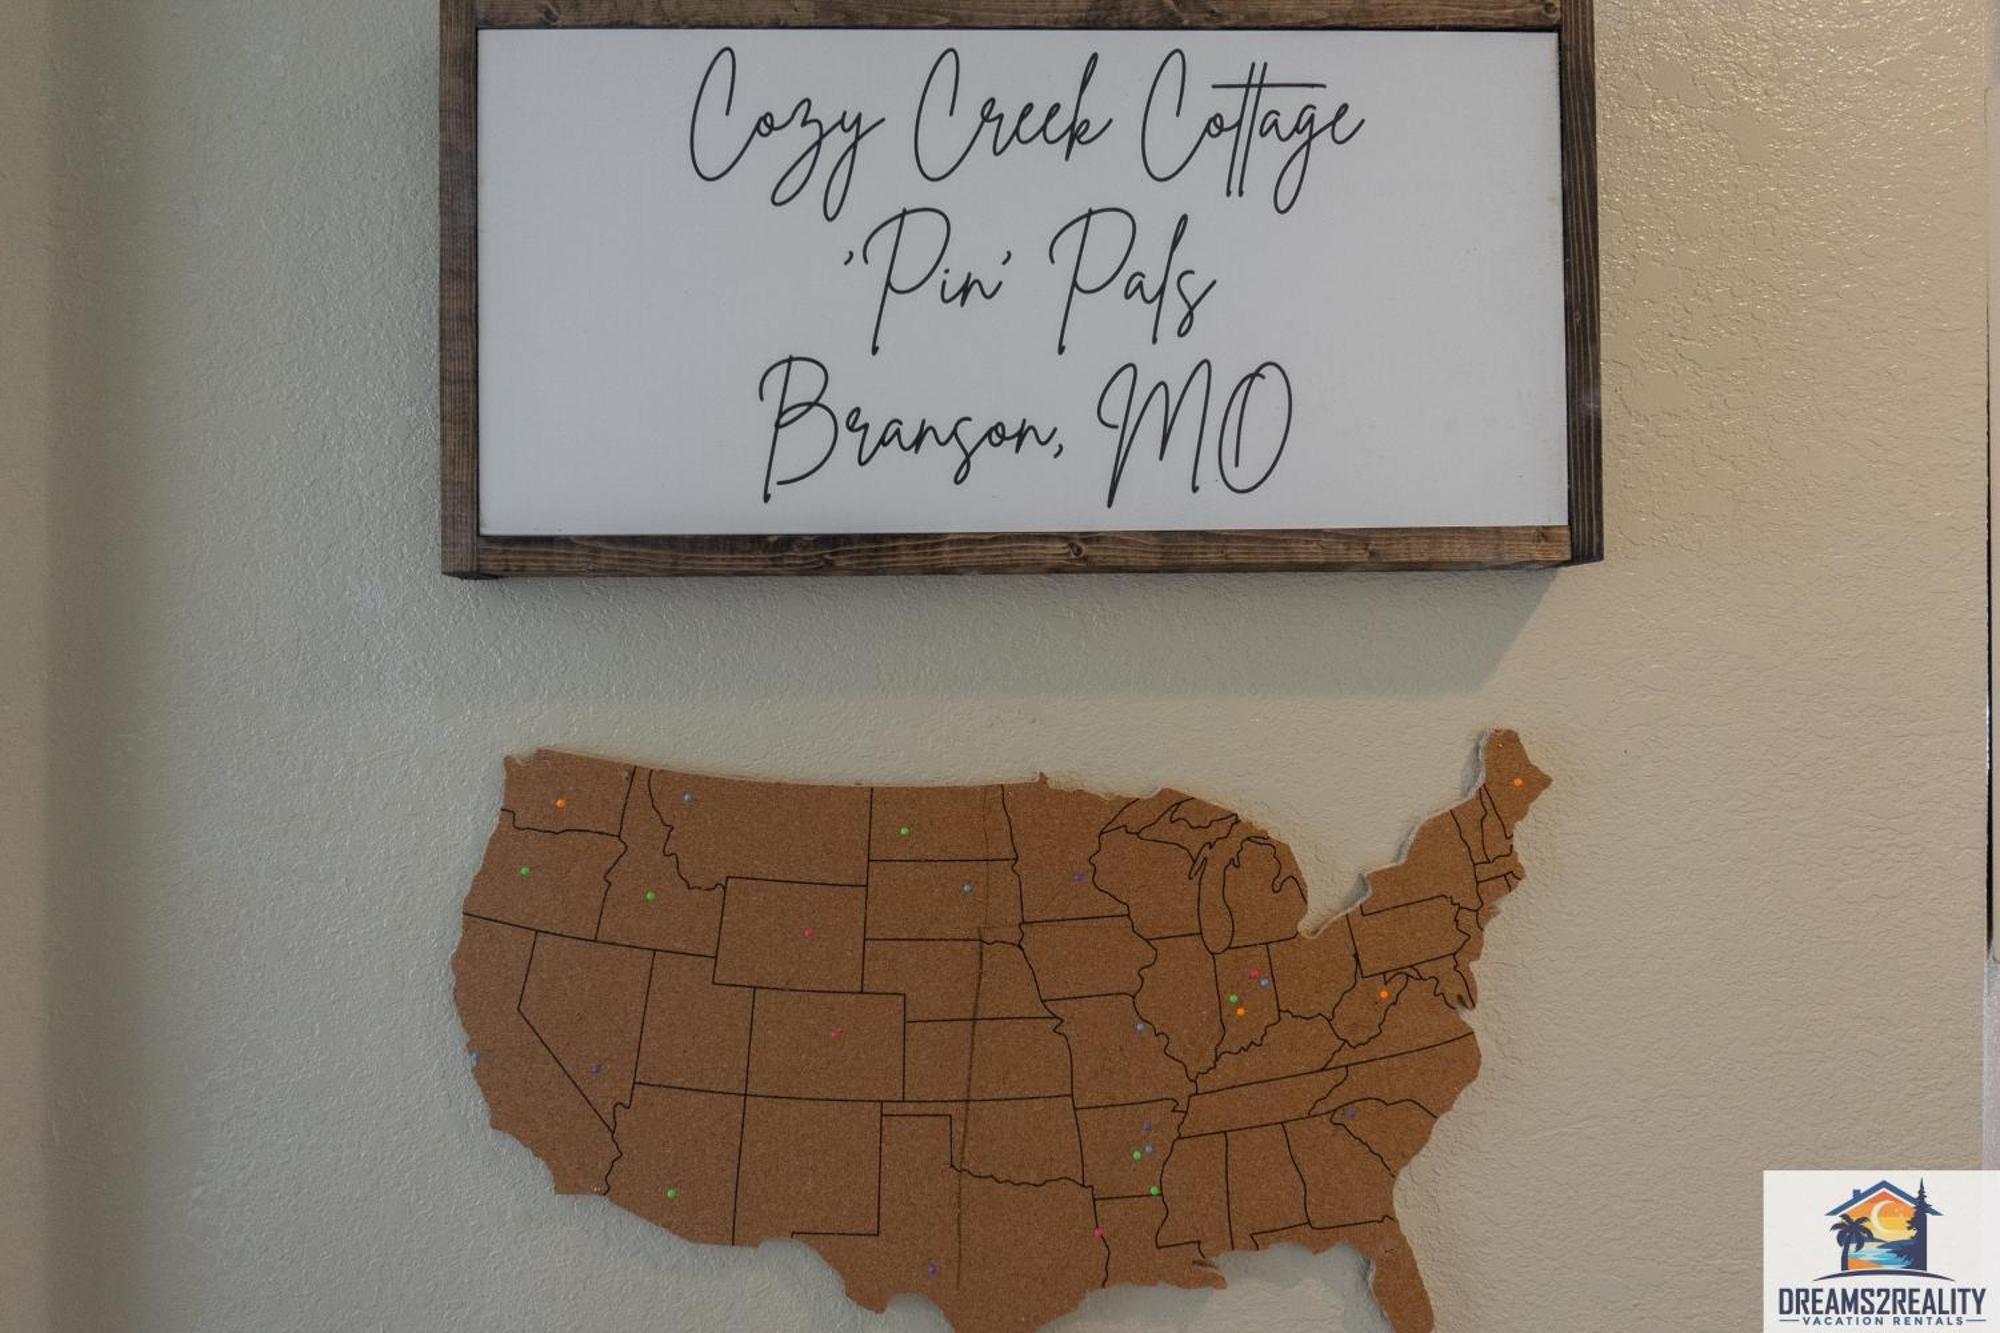 Cozy Creek Cottage
'Pin' Pals
Branson, MO
DREAMS2REALITY
VACATION RENTALS